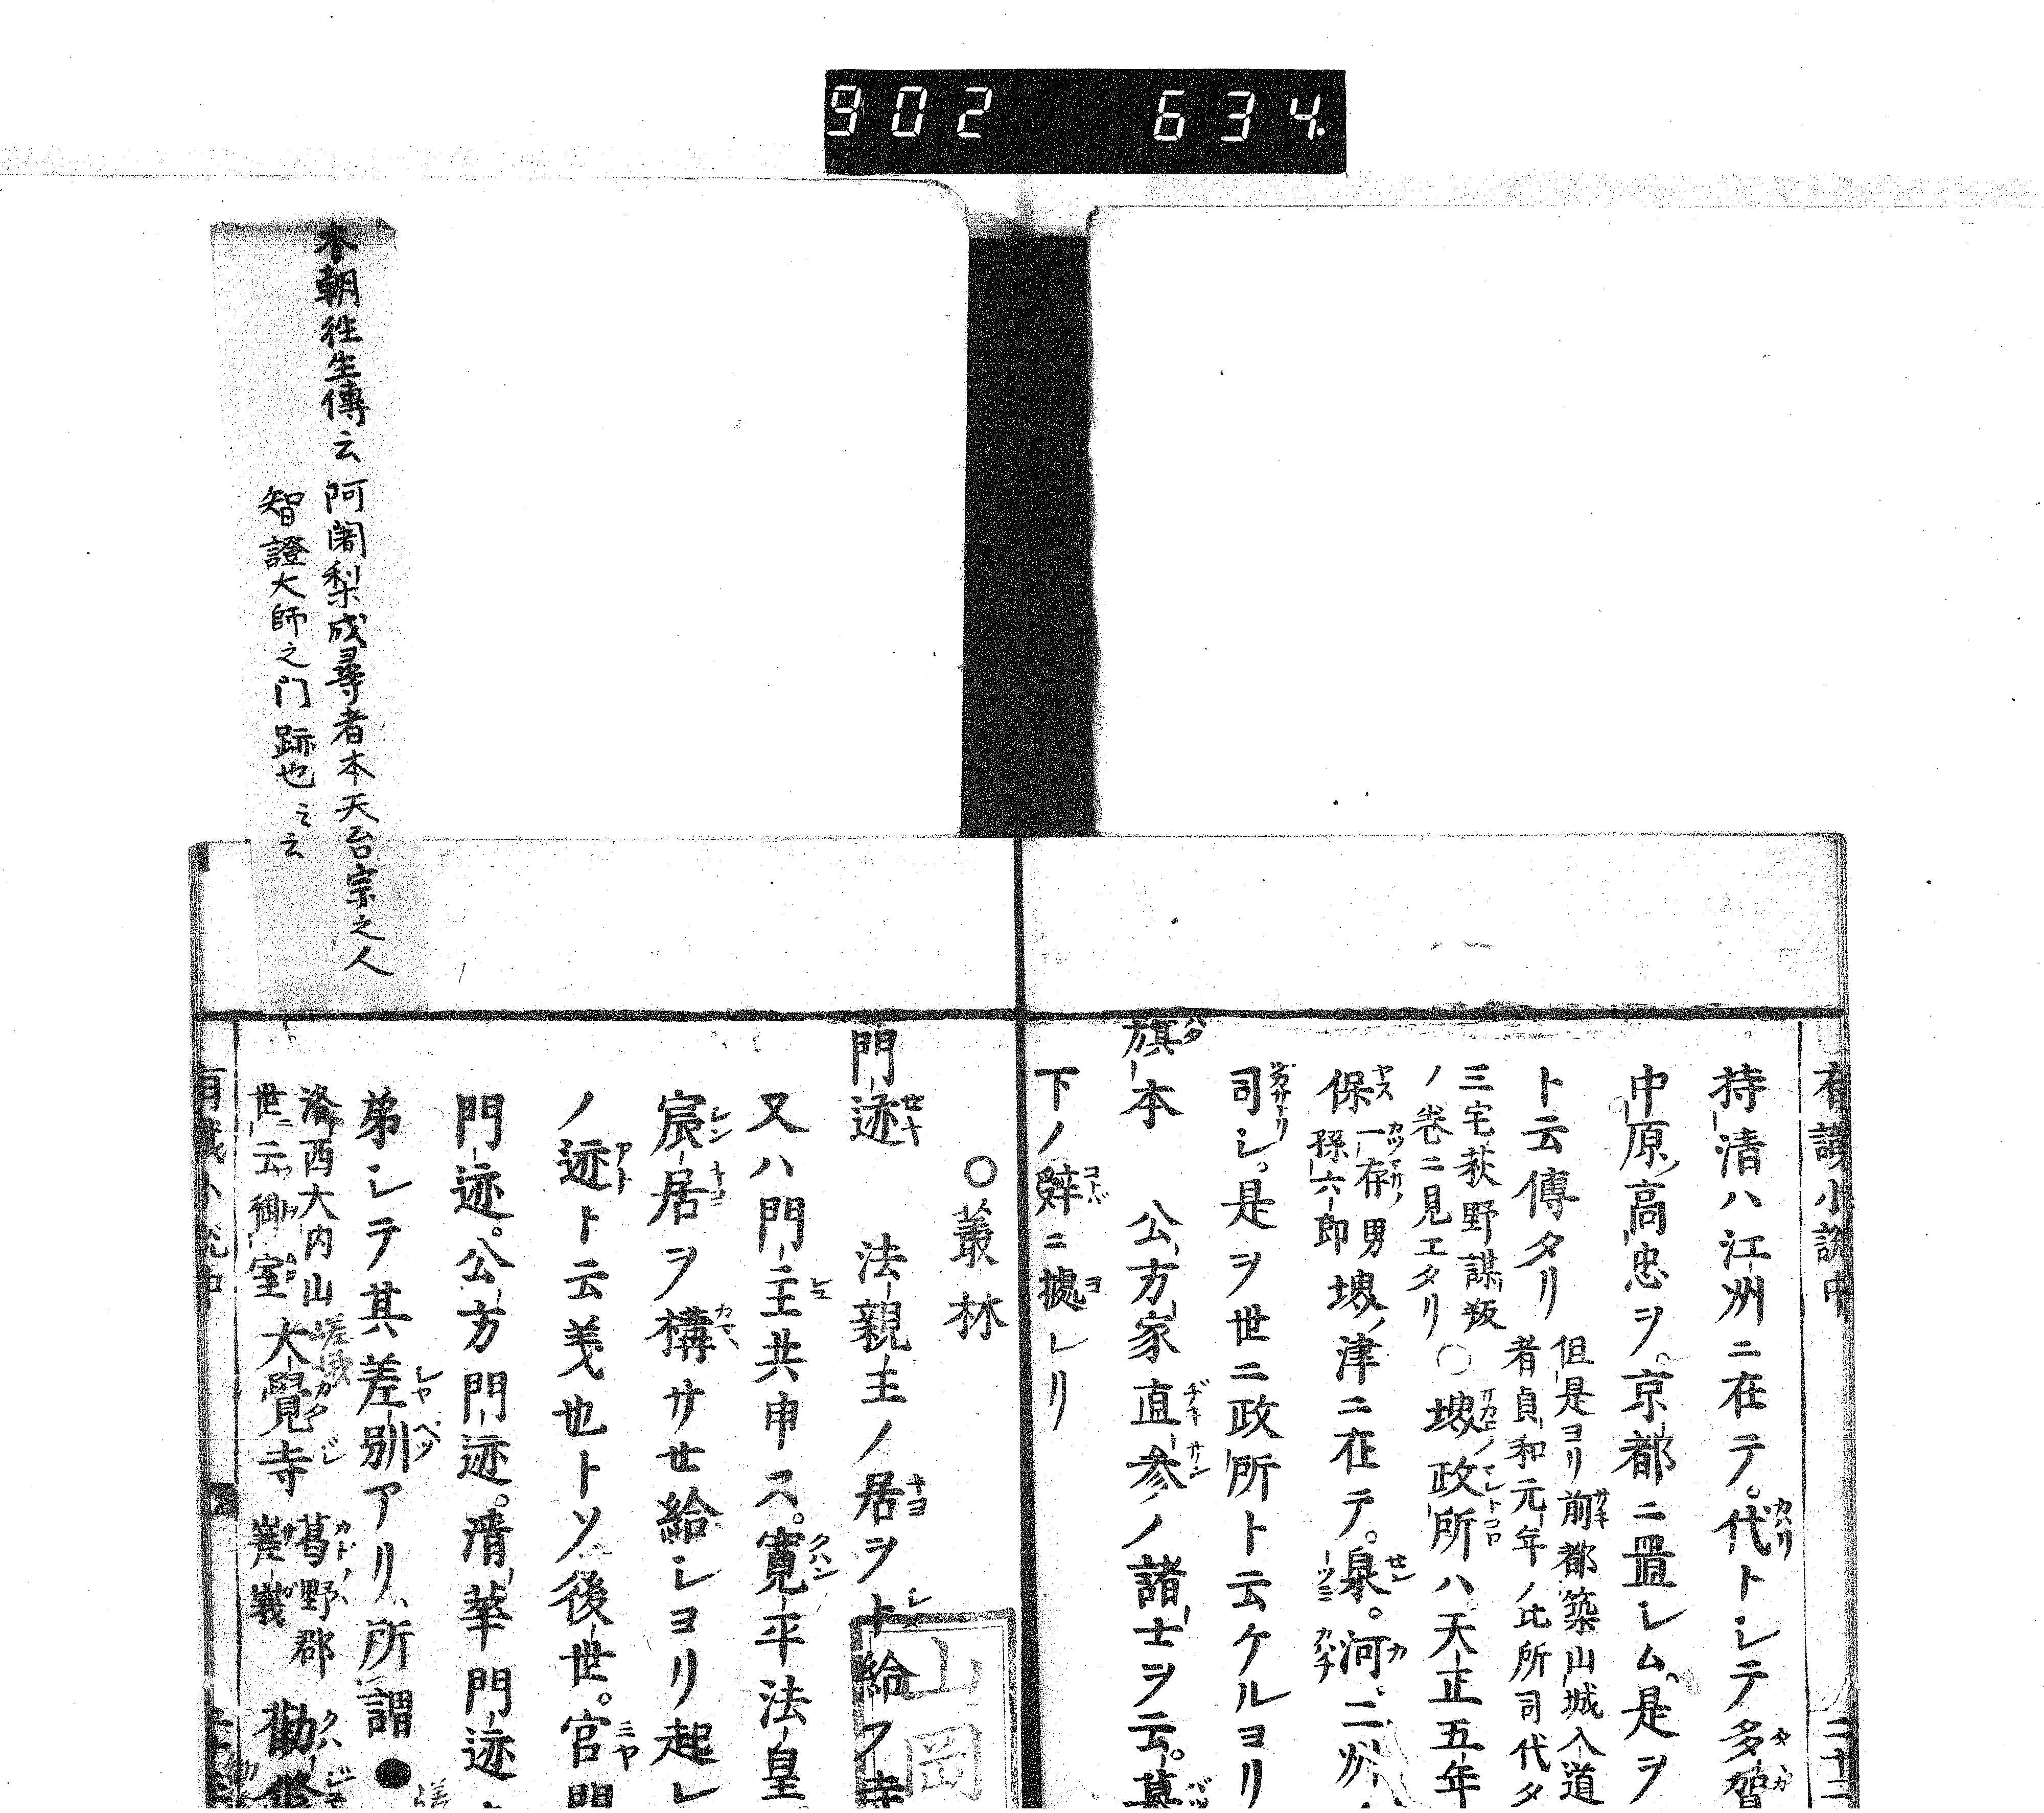 902 634.
有識小説中 二十二
持清ハ江洲ニ在テ。代トシテ多賀
中原高忠ヲ。京都ニ置シム。是ヲ
ト云傳タリ 但是ヨリ前都築山城入道
者貞和元年ノ比所司代タ
三宅荻野謀叛
ノ巻ニ見エタリ 〇堺政所ハ天正五年
保一存男
孫六郎 堺津ニ在テ。泉。河。二州
司シ。是ヲ世ニ政所ト云ケルヨリ
旗本 公方家直参ノ諸士ヲ云。幕
下ノ辞ニ據レリ
〇叢林
門迹 法親主ノ居ヲト給フ寺
又ハ門主共申ス。寛平法皇
宸居ヲ構サセ給シヨリ起レ
ノ迹ト云義也トソ後世。官門
門迹。公方門迹。清華門迹
弟シテ其差別アリ所謂●
洛西大内山 嵯峨
世云御室 大覺寺 葛野郡
嵯峨 勧修
本朝往生傳云 阿闍梨成尋者本天台宗之人
智證大師之门跡也云云
山岡